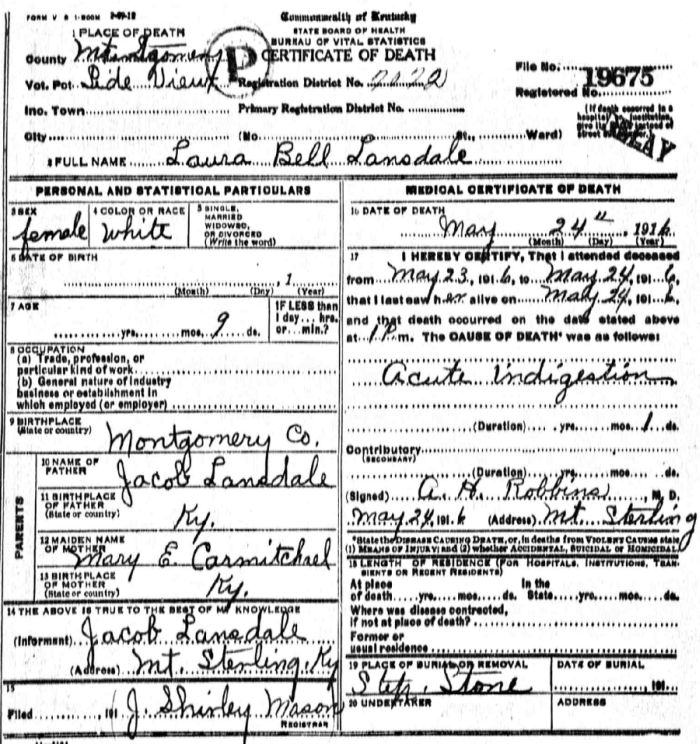 FORM V S 1-500M
Commonwealth of Kentucky
STATE BOARD OF HEALTH
BUREAU OF VITAL STATISTICS
CERTIFICATE OF DEATH
1 PLACE OF DEATH
County Montgomery
Vot. Pct. Side Vieux
Registration District No. 2022
File No. 19675
Registered No.
Inc. Town
Primary Registration District No.
(If death occurred in a hospital or institution, give its instead of street
City (No. St., Ward)
2 FULL NAME Laura Bell Lansdale
PERSONAL AND STATISTICAL PARTICULARS
3 SEX
female
4 COLOR OR RACE
White
5 SINGLE,
MARRIED
WIDOWED,
OR DIVORCED
(Write the word)
6 DATE OF BIRTH
, 1
(Month) (Day) (Year)
7 AGE
yrs. mos. 9 ds.
IF LESS than
1 day... hrs.
or... min.?
8 OCCUPATION
(a) Trade, profession, or
particular kind of work
(b) General nature of industry
business or establishment in
which employed (or employer)
9 BIRTHPLACE
(State or country)
Montgomery Co.
PARENTS
10 NAME OF
FATHER
Jacob Lansdale
11 BIRTHPLACE
OF FATHER
(State or country)
Ky.
12 MAIDEN NAME
OF MOTHER
Mary E. Carmitchael
13 BIRTHPLACE
OF MOTHER
(State or country)
Ky.
14 THE ABOVE IS TRUE TO THE BEST OF MY KNOWLEDGE
(Informant) Jacob Lansdale
(Address) Mt. Sterling, Ky
15
Filed , 191 J. Shirley Mason
REGISTRAR
MEDICAL CERTIFICATE OF DEATH
16 DATE OF DEATH
May 24th, 1916
(Month) (Day) (Year)
17 I HEREBY CERTIFY, That I attended deceased
from May 23, 1916, to May 24, 1916,
that I last saw her alive on May 24, 1916,
and that death occurred on the date stated above
at 1 P.m. The CAUSE OF DEATH* was as follows:
Acute Indigestion
(Duration) yrs. mos. 1 ds.
Contributory
(SECONDARY)
(Duration) yrs. mos. ds.
(Signed) A. H. Robbins, M. D.
May 24, 1916 (Address) Mt. Sterling
*State the DISEASE CAUSING DEATH, or, in deaths from VIOLENT CAUSES state
(1) MEANS OF INJURY; and (2) whether ACCIDENTAL, SUICIDAL or HOMICIDAL
18 LENGTH OF RESIDENCE (FOR HOSPITALS, INSTITUTIONS, TRAN-
SIENTS OR RECENT RESIDENTS)
At place In the
of death yrs. mos. ds. State yrs. mos. ds.
Where was disease contracted,
if not at place of death?
Former or
usual residence
19 PLACE OF BURIAL OR REMOVAL
Step Stone
DATE OF BURIAL
, 191
20 UNDERTAKER
ADDRESS